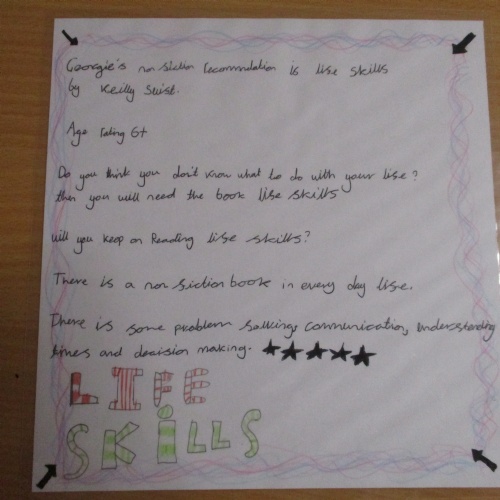 Georgie's non siction recommdation is lise skills
by Keilly Swist.
Age rating 6+
Do you think you don't know what to do with your lise?
then you will need the book lise skills
will you keep on Reading lise skills?
There is a non siction book in every day lise.
There is some problem salking, communication, understanding
times and decision making.
LIFE
SKiLLS